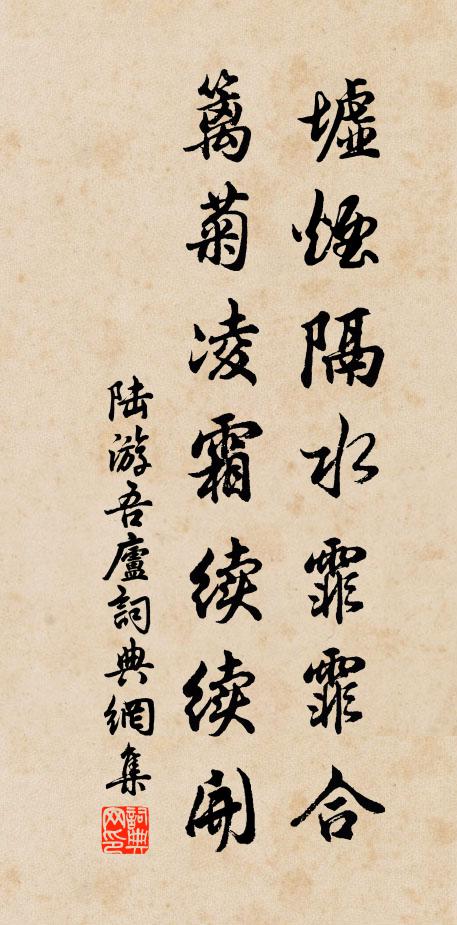 墟煙隔水霏霏合
籬菊凌霜續續開
陸游吾廬詞典網集
詞典網印